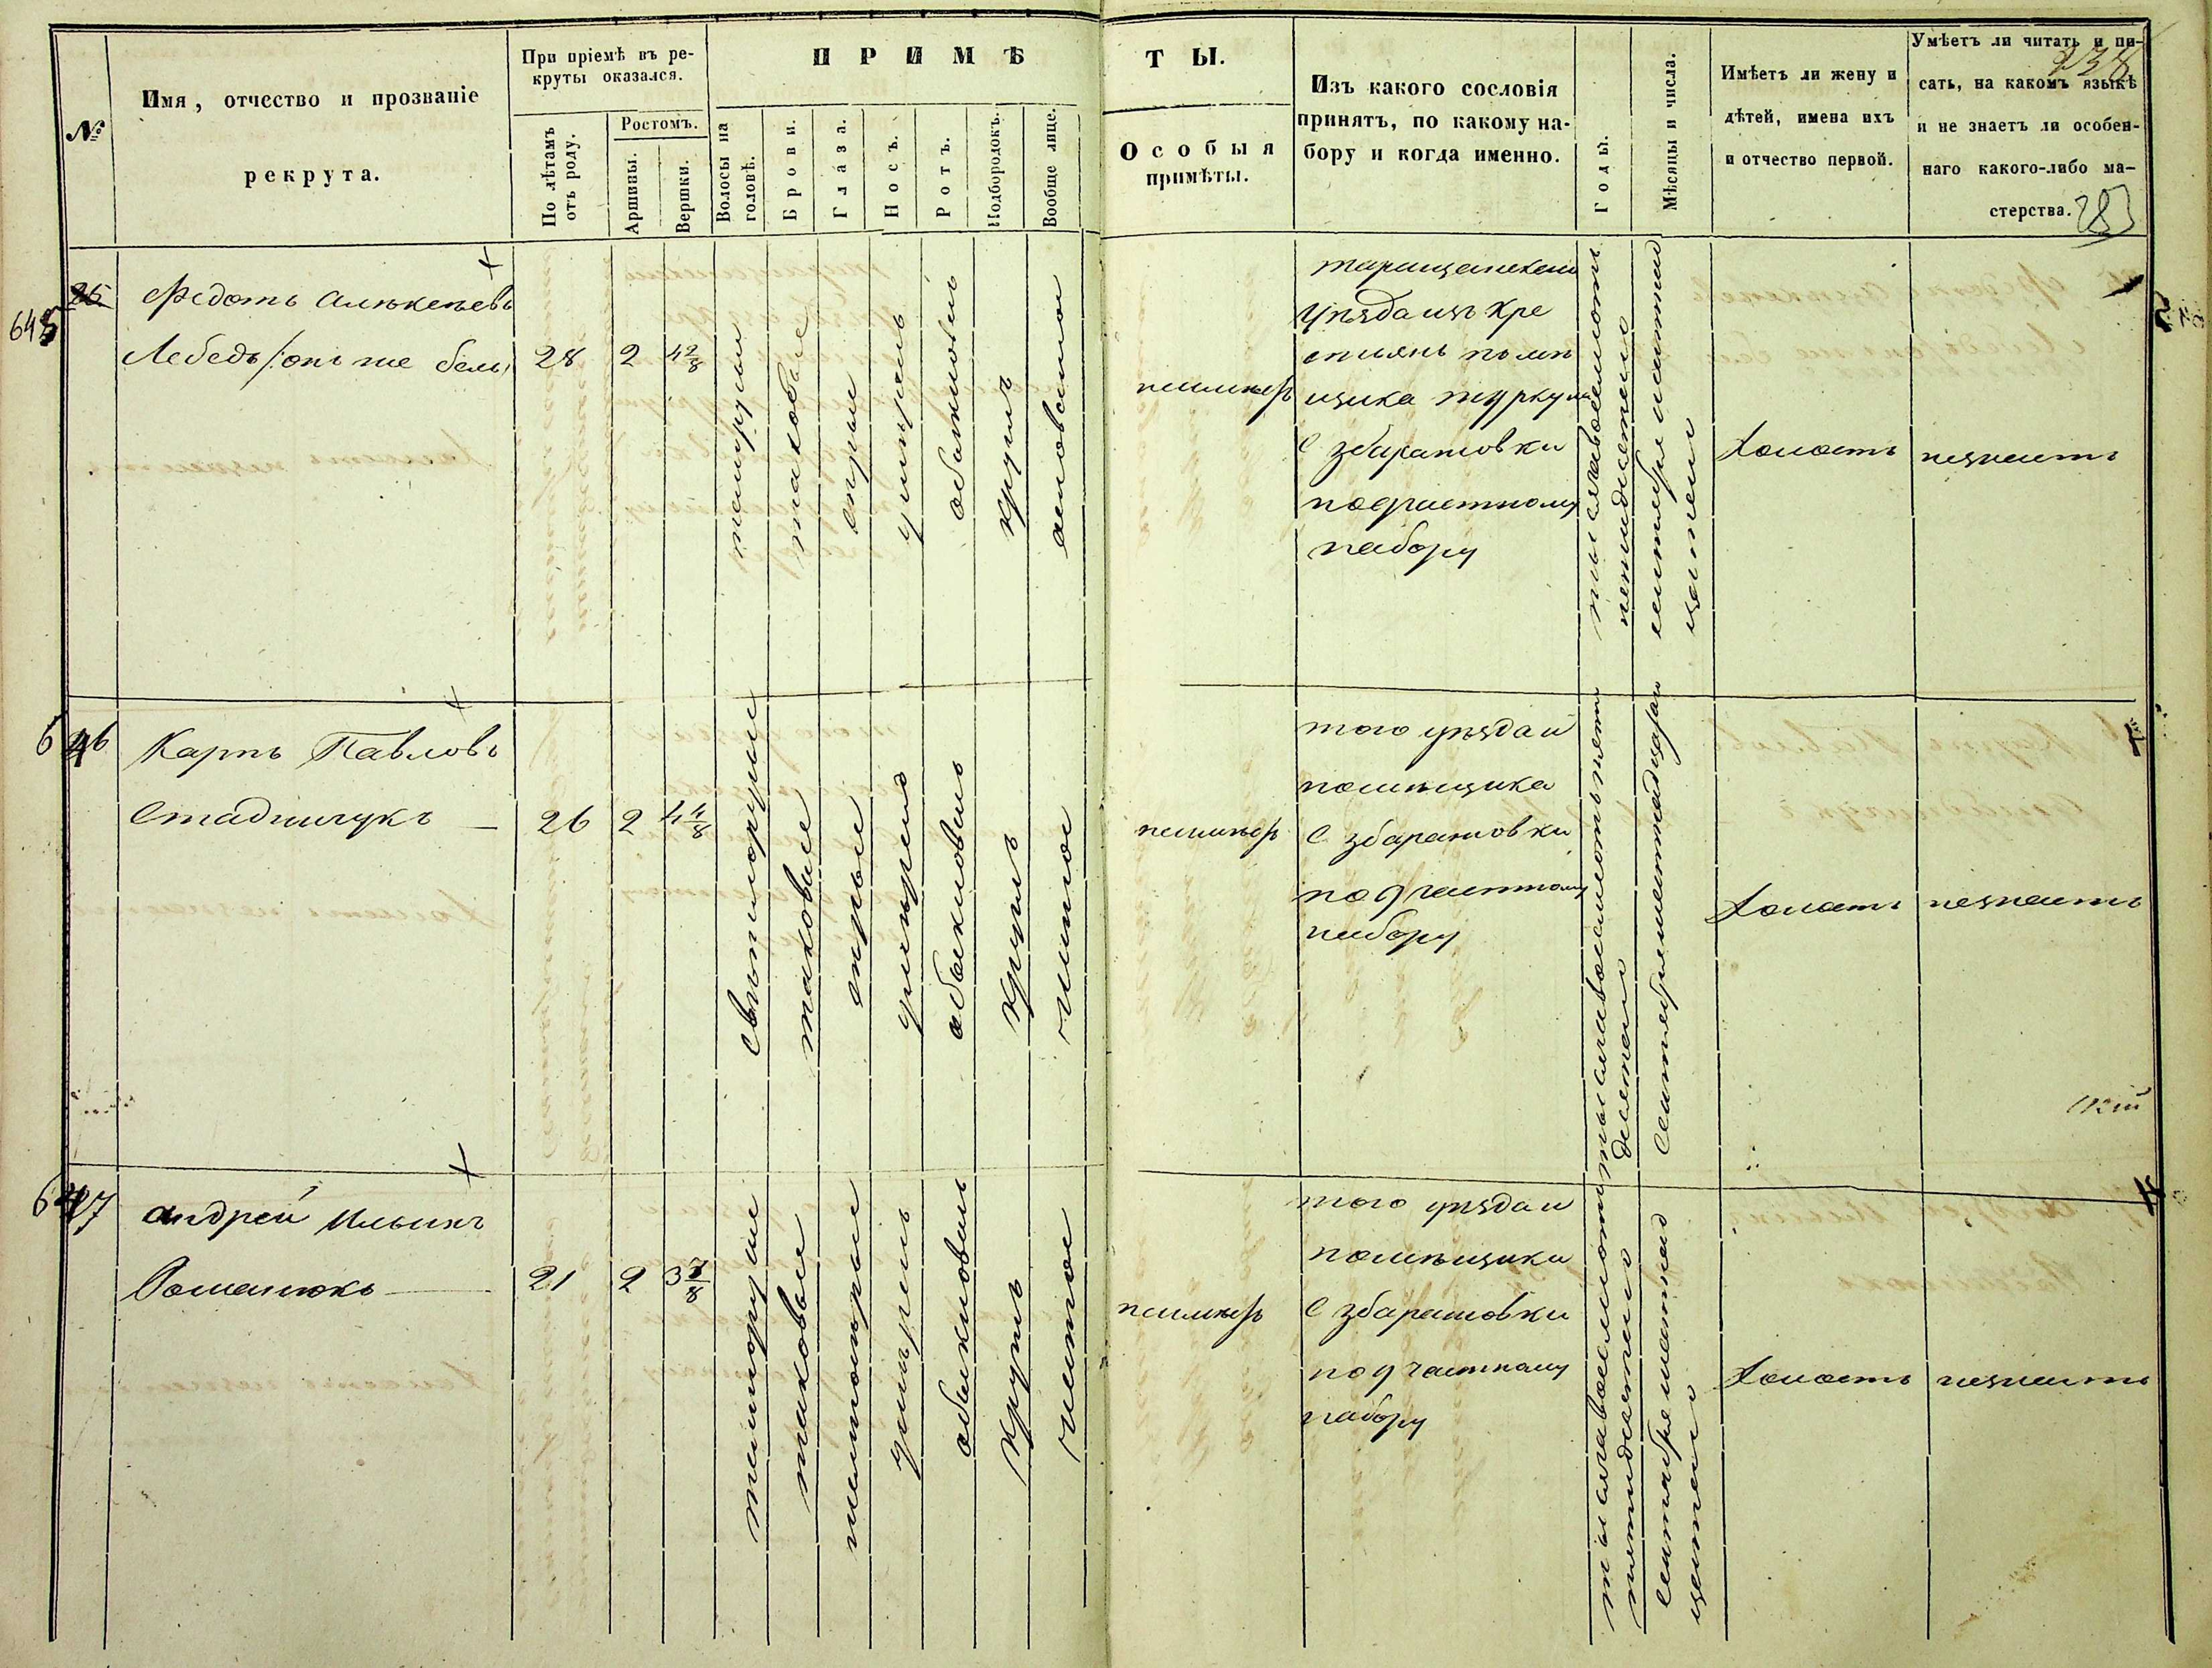 №
Имя, отчество и прозваніе
рекрута.
При пріемѣ въ ре-
круты оказался.
По лѣтамъ
отъ роду.
Ростомъ.
Аршины.
Вершки.
ПРИМѢ
Волосы на
головѣ.
Брови.
Глаза.
Носъ.
Ротъ.
Подбородокъ.
Вообще лице.
ТЫ.
Особыя
примѣты.
Изъ какого сословія
принятъ, по какому на-
бору и когда именно.
Годы.
Мѣсяцы и числа.
Имѣетъ ли жену и
дѣтей, имена ихъ
и отчество первой.
Умѣетъ ли читать и пи-
сать, на какомъ языкѣ
и не знаетъ ли особен-
наго какого-либо ма-
стерства.
283
645
Федотъ Алѣксѣевъ
Лебедь /:онъ же
28
2
4 2/8
темнорусы
таковые
сѣрые
умѣренъ
обыкновенъ
круглъ
неимѣетъ
таращанскаго
уѣзда изъ кре
стьянъ помѣ
щика
с збараховки
почастному
набору
тысячавосемьсотъ
пятидесятого
холостъ
незнаетъ
646
Карпъ Павловъ
Стадничукъ
26
2
4 4/8
свѣтлорусые
таковые
сѣрые
умѣренъ
обыкновенъ
круглъ
чистое
неимѣетъ
того уѣзда и
помѣщика
с збараховки
по частному
набору
холостъ
незнаетъ
647
Андрей Ильинъ
Романюкъ
21
2
3 7/8
темнорусые
таковые
умѣренъ
обыкновенъ
круглъ
чистое
неимѣетъ
того уѣзда и
помѣщика
с збараховки
по частному
набору
тысячавосемьсотъ
пятидесятого
холостъ
незнаетъ